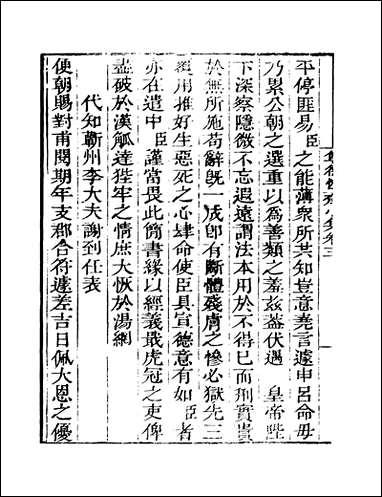 平停匪易臣之能薄衆所共知豈意堯言遽申呂命毋
乃累公朝之選重以爲善類之羞茲蓋伏遇　皇帝陛
下深察隱微不忘遐遠謂法本用於不得已而刑實貴
於無所施苟辭旣一成卽有斷體殘膚之慘必獄先三
覆用推好生惡死之心肆命使臣具宣德意有如臣者
亦在遣中臣謹當畏此簡書緣以經義戢虎冠之吏俾
盡破於漢觚達狴牢之情庶大恢於湯網
代知蘄州李大夫謝到任表
便朝賜對甫閱期年支郡合符遽差吉日佩大恩之優